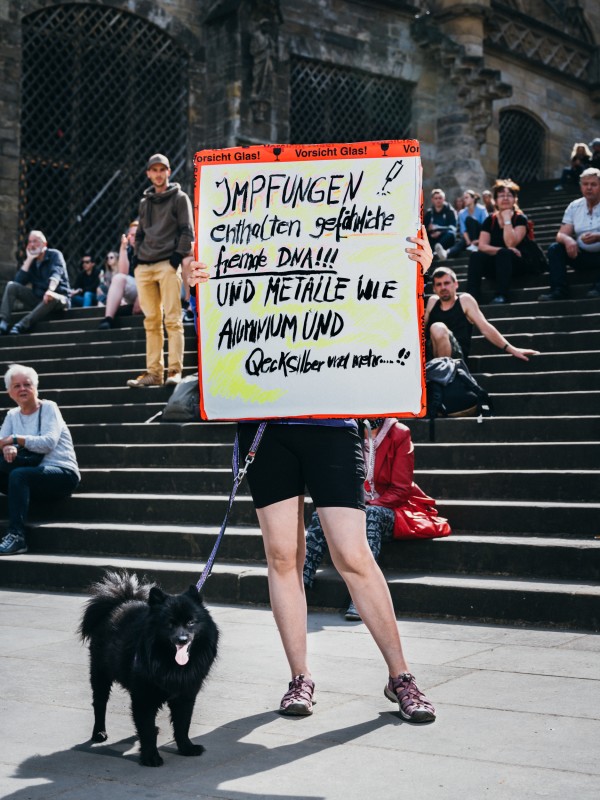 orsicht Glas! Vorsicht Glas! Vor
IMPFUNGEN
enthalten gefährliche
fremde DNA!!!
UND METALLE WIE
ALUMINIUM UND
Qecksilber und mehr....!!